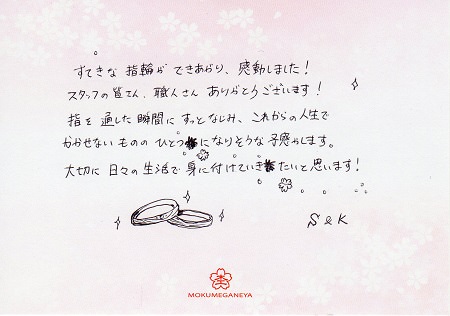 すてきな指輪ができあがり、感動しました!
スタッフの皆さん、職人さん ありがとうございます!
指を通した瞬間にすっとなじみ、これからの人生で
かかせないもののひとつになりそうな予感がします。
大切に日々の生活で身に付けていきたいと思います!
S & K
MOKUMEGANEYA